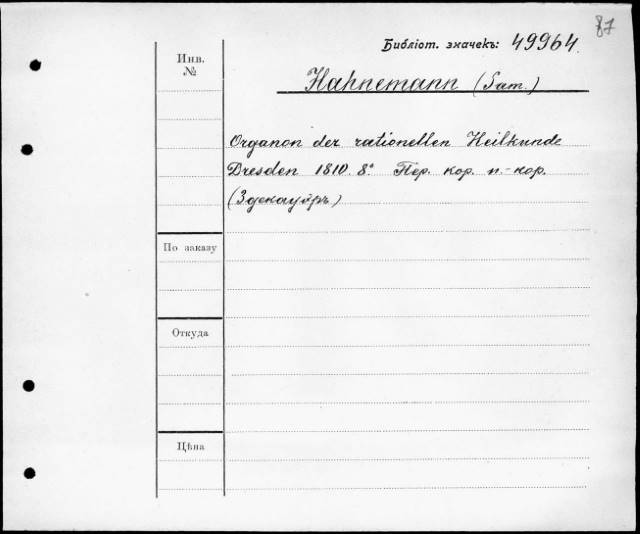 87
Библіот. значекъ: 49964.
Инв. №
Hahnemann (Sam.)
Organon der rationellen Heilkunde
Dresden 1810. 8° Пер. кор. п.-кор.
По заказу
Откуда
Цѣна